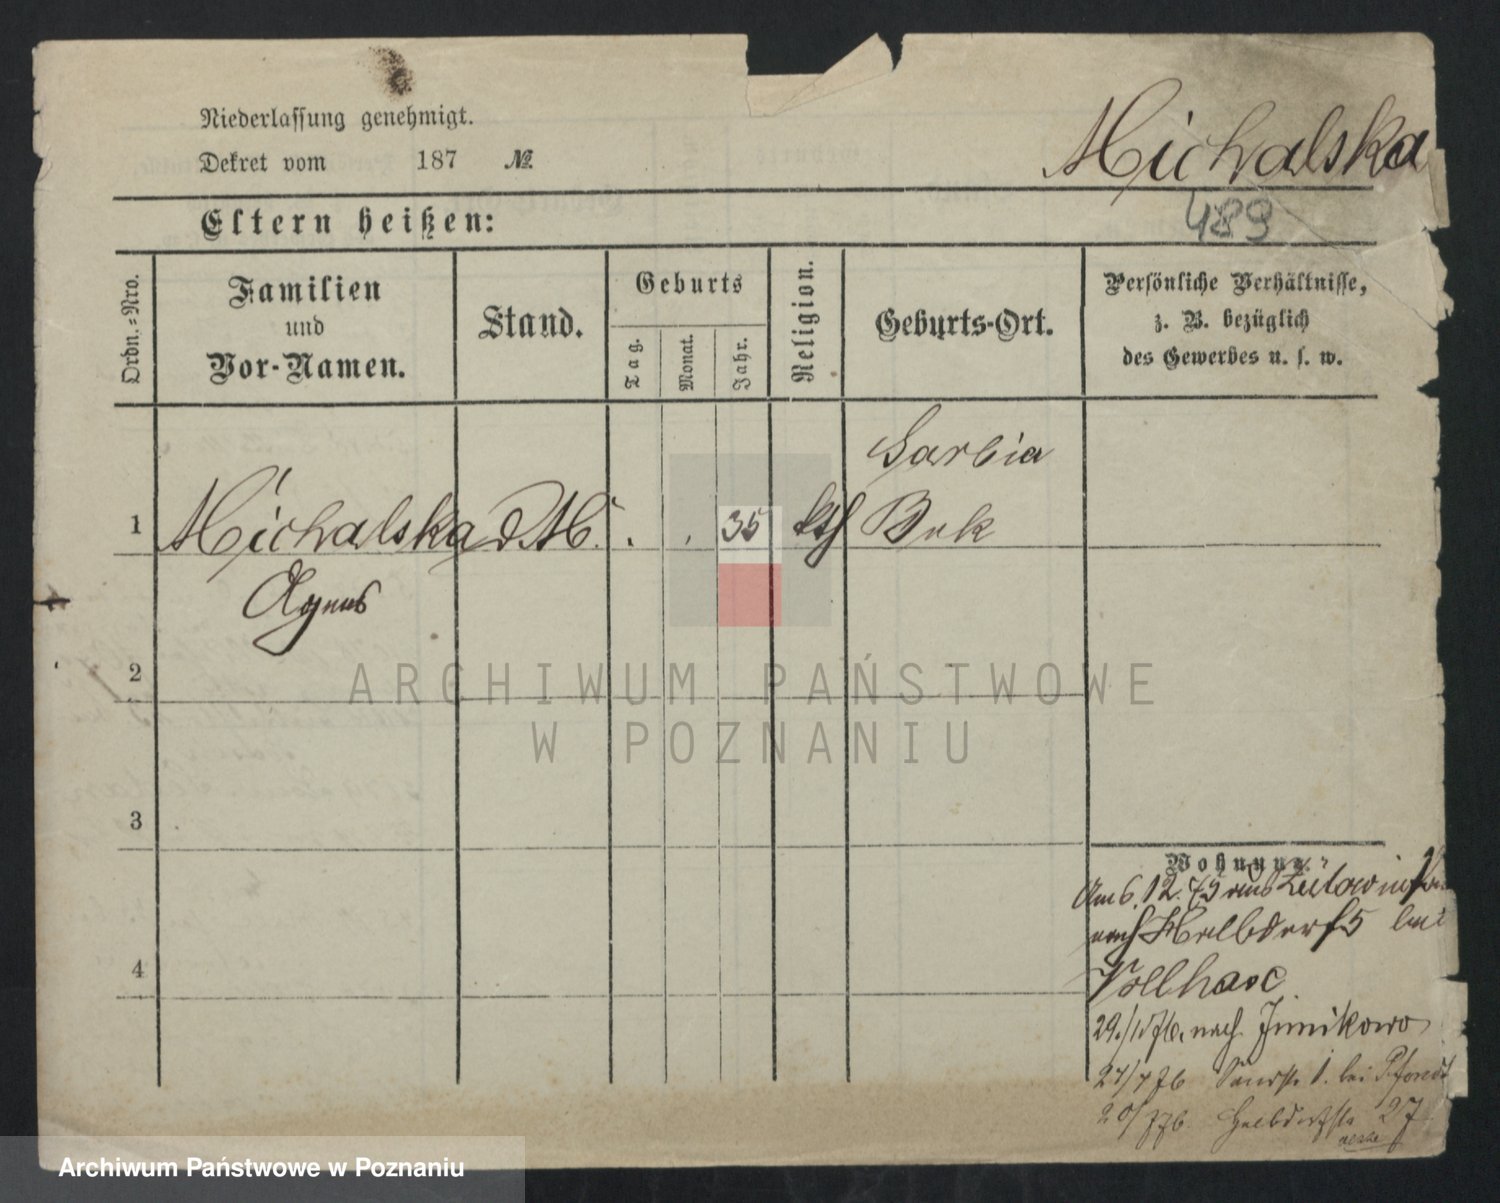 Niederlassung genehmigt.
Dekret vom 187 №
Michalska
489
Eltern heißen:
Ordn.-Nro.
Familien
und
Vor-Namen.
Stand.
Geburts
Tag.
Monat.
Jahr.
Religion.
Geburts-Ort.
Persönliche Verhältnisse,
z. B. bezüglich
des Gewerbes u. s. w.
1
Michalska d M. . . 35 kth
Sarbia
Buk
Agnes
2
3
4
Wohnung:
Am 6. 12. 75 aus
nach Halbdorf 5 bei
Vollhase
29./1 76. nach Junikowo
27/4 76 Sandstr 1. bei
20/ 76 Halbdorfstr 27
ARCHIWUM PAŃSTWOWE
W POZNANIU
Archiwum Państwowe w Poznaniu